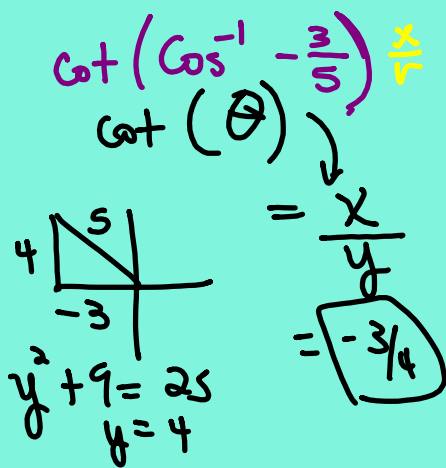 cot (Cos⁻¹ - 3/5) x/r
cot (θ)
= x/y
5
4
-3
= -3/4
y² + 9 = 25
y = 4